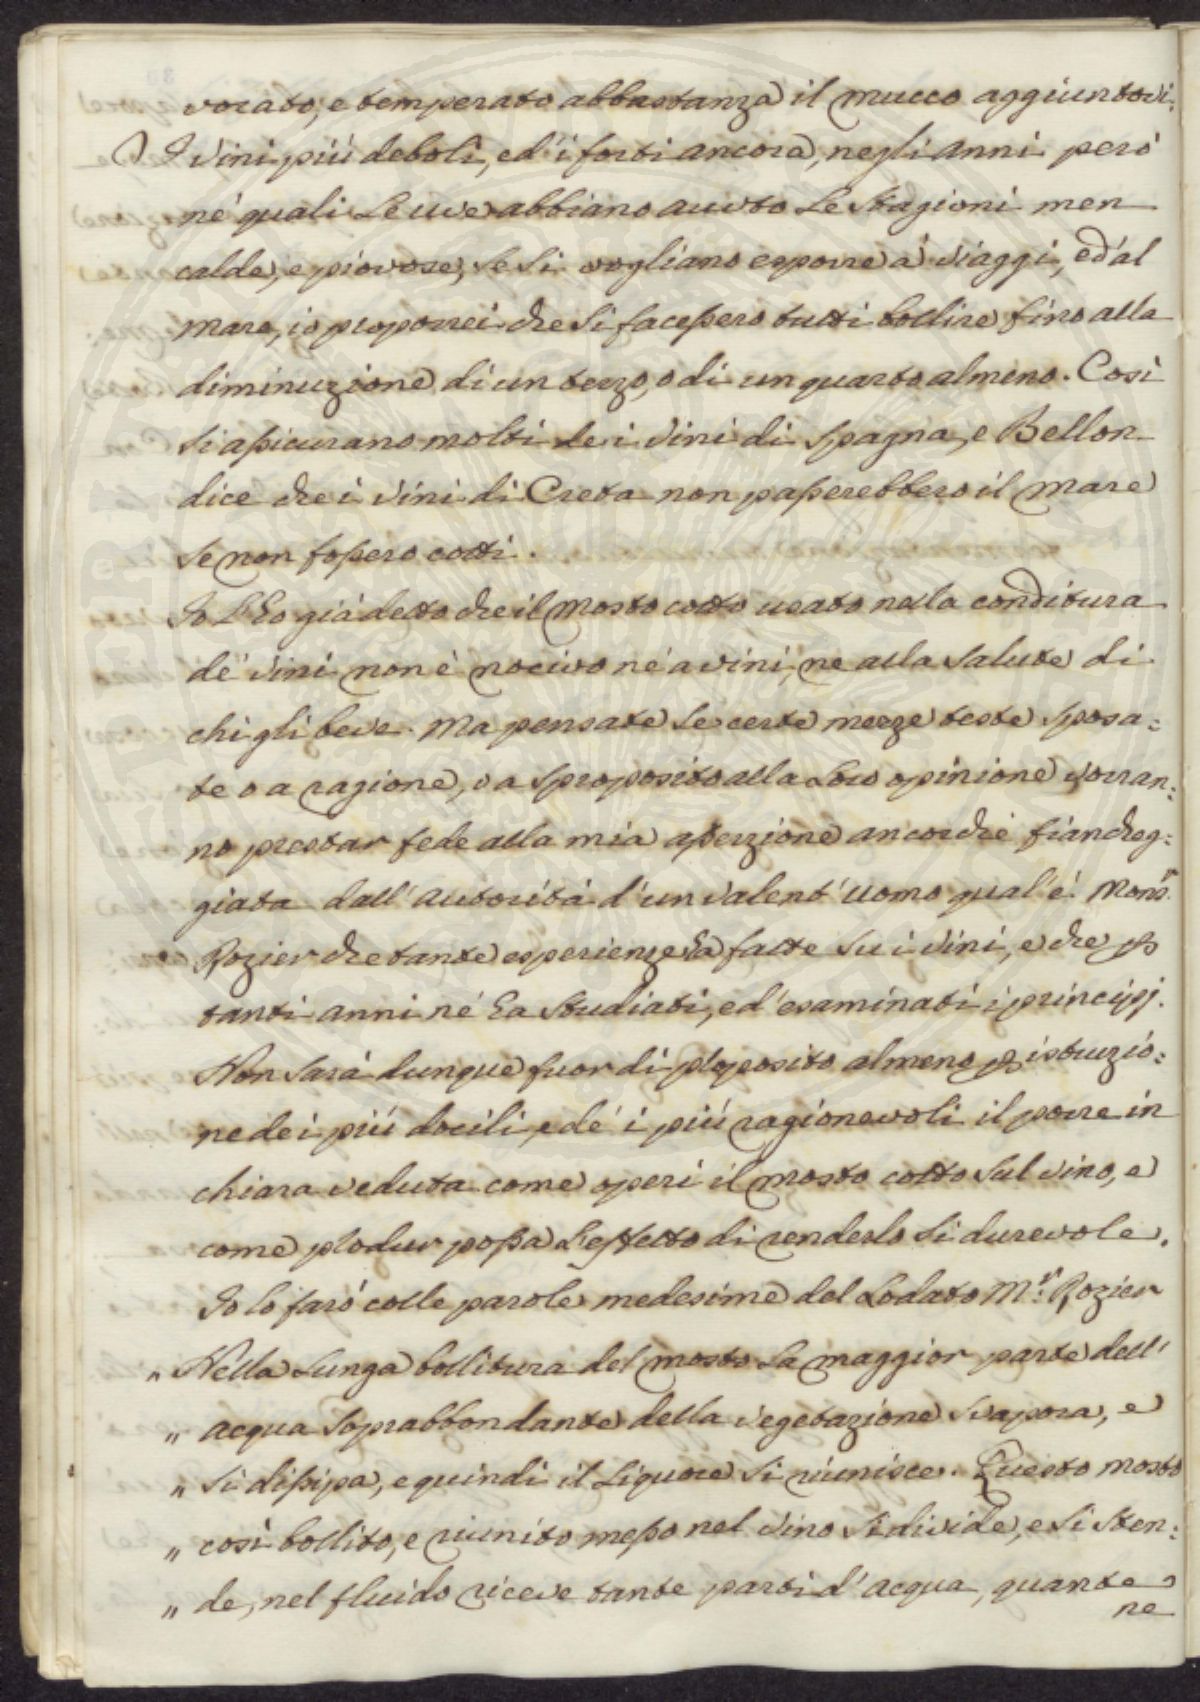 vorato, e temperato abbastanza il mucco aggiuntovi.
I Vini più deboli, ed i forti ancora, negli anni però
né quali le uve abbiano auuto le Stagioni men
calde, e piovose, se si vogliano esporre a' viaggi, ed al
Mare, io proporrei che si facessero tutti bollire fino alla
diminuzione di un terzo, o di un quarto almeno. Così
si assicurano molti de i Vini di Spagna, e Bellon
dice che i Vini di Creta non passerebbero il Mare
se non fossero cotti.
Io l'ho già detto che il Mosto cotto usato nella conditura
de' Vini non è nocivo né a vini, ne alla salute di
chi gli beve. Ma pensate se certe mezze teste sposa=
te o a ragione, o a sproposito alla loro opinione vorran=
no prestar fede alla mia aserzione ancorché fiancheg=
giata dall' autorità d'un valent' uomo qual' é Mons.r
Rozier che tante esperienze ha fatte su i Vini, e che p
tanti anni né ha studiati, ed' esaminati i principj.
Non sarà dunque fuor di proposito almeno p istruzio=
ne de i più docili, e dé i più ragionevoli il porre in
chiara veduta come operi il mosto cotto sul vino, e
come produr possa l'effetto di renderlo si durevole.
Io lo farò colle parole medesime del Lodato M.r Rozier
" Nella lunga bollitura del mosto la maggior parte dell'
" acqua soprabbondante della vegetazione svapora, e
" si dissipa, e quindi il liquore si riunisce. Questo mosto
" così bollito, e riunito messo nel Vino si divide, e si sten=
" de, nel fluido riceve tante parti d'acqua, quante
ne